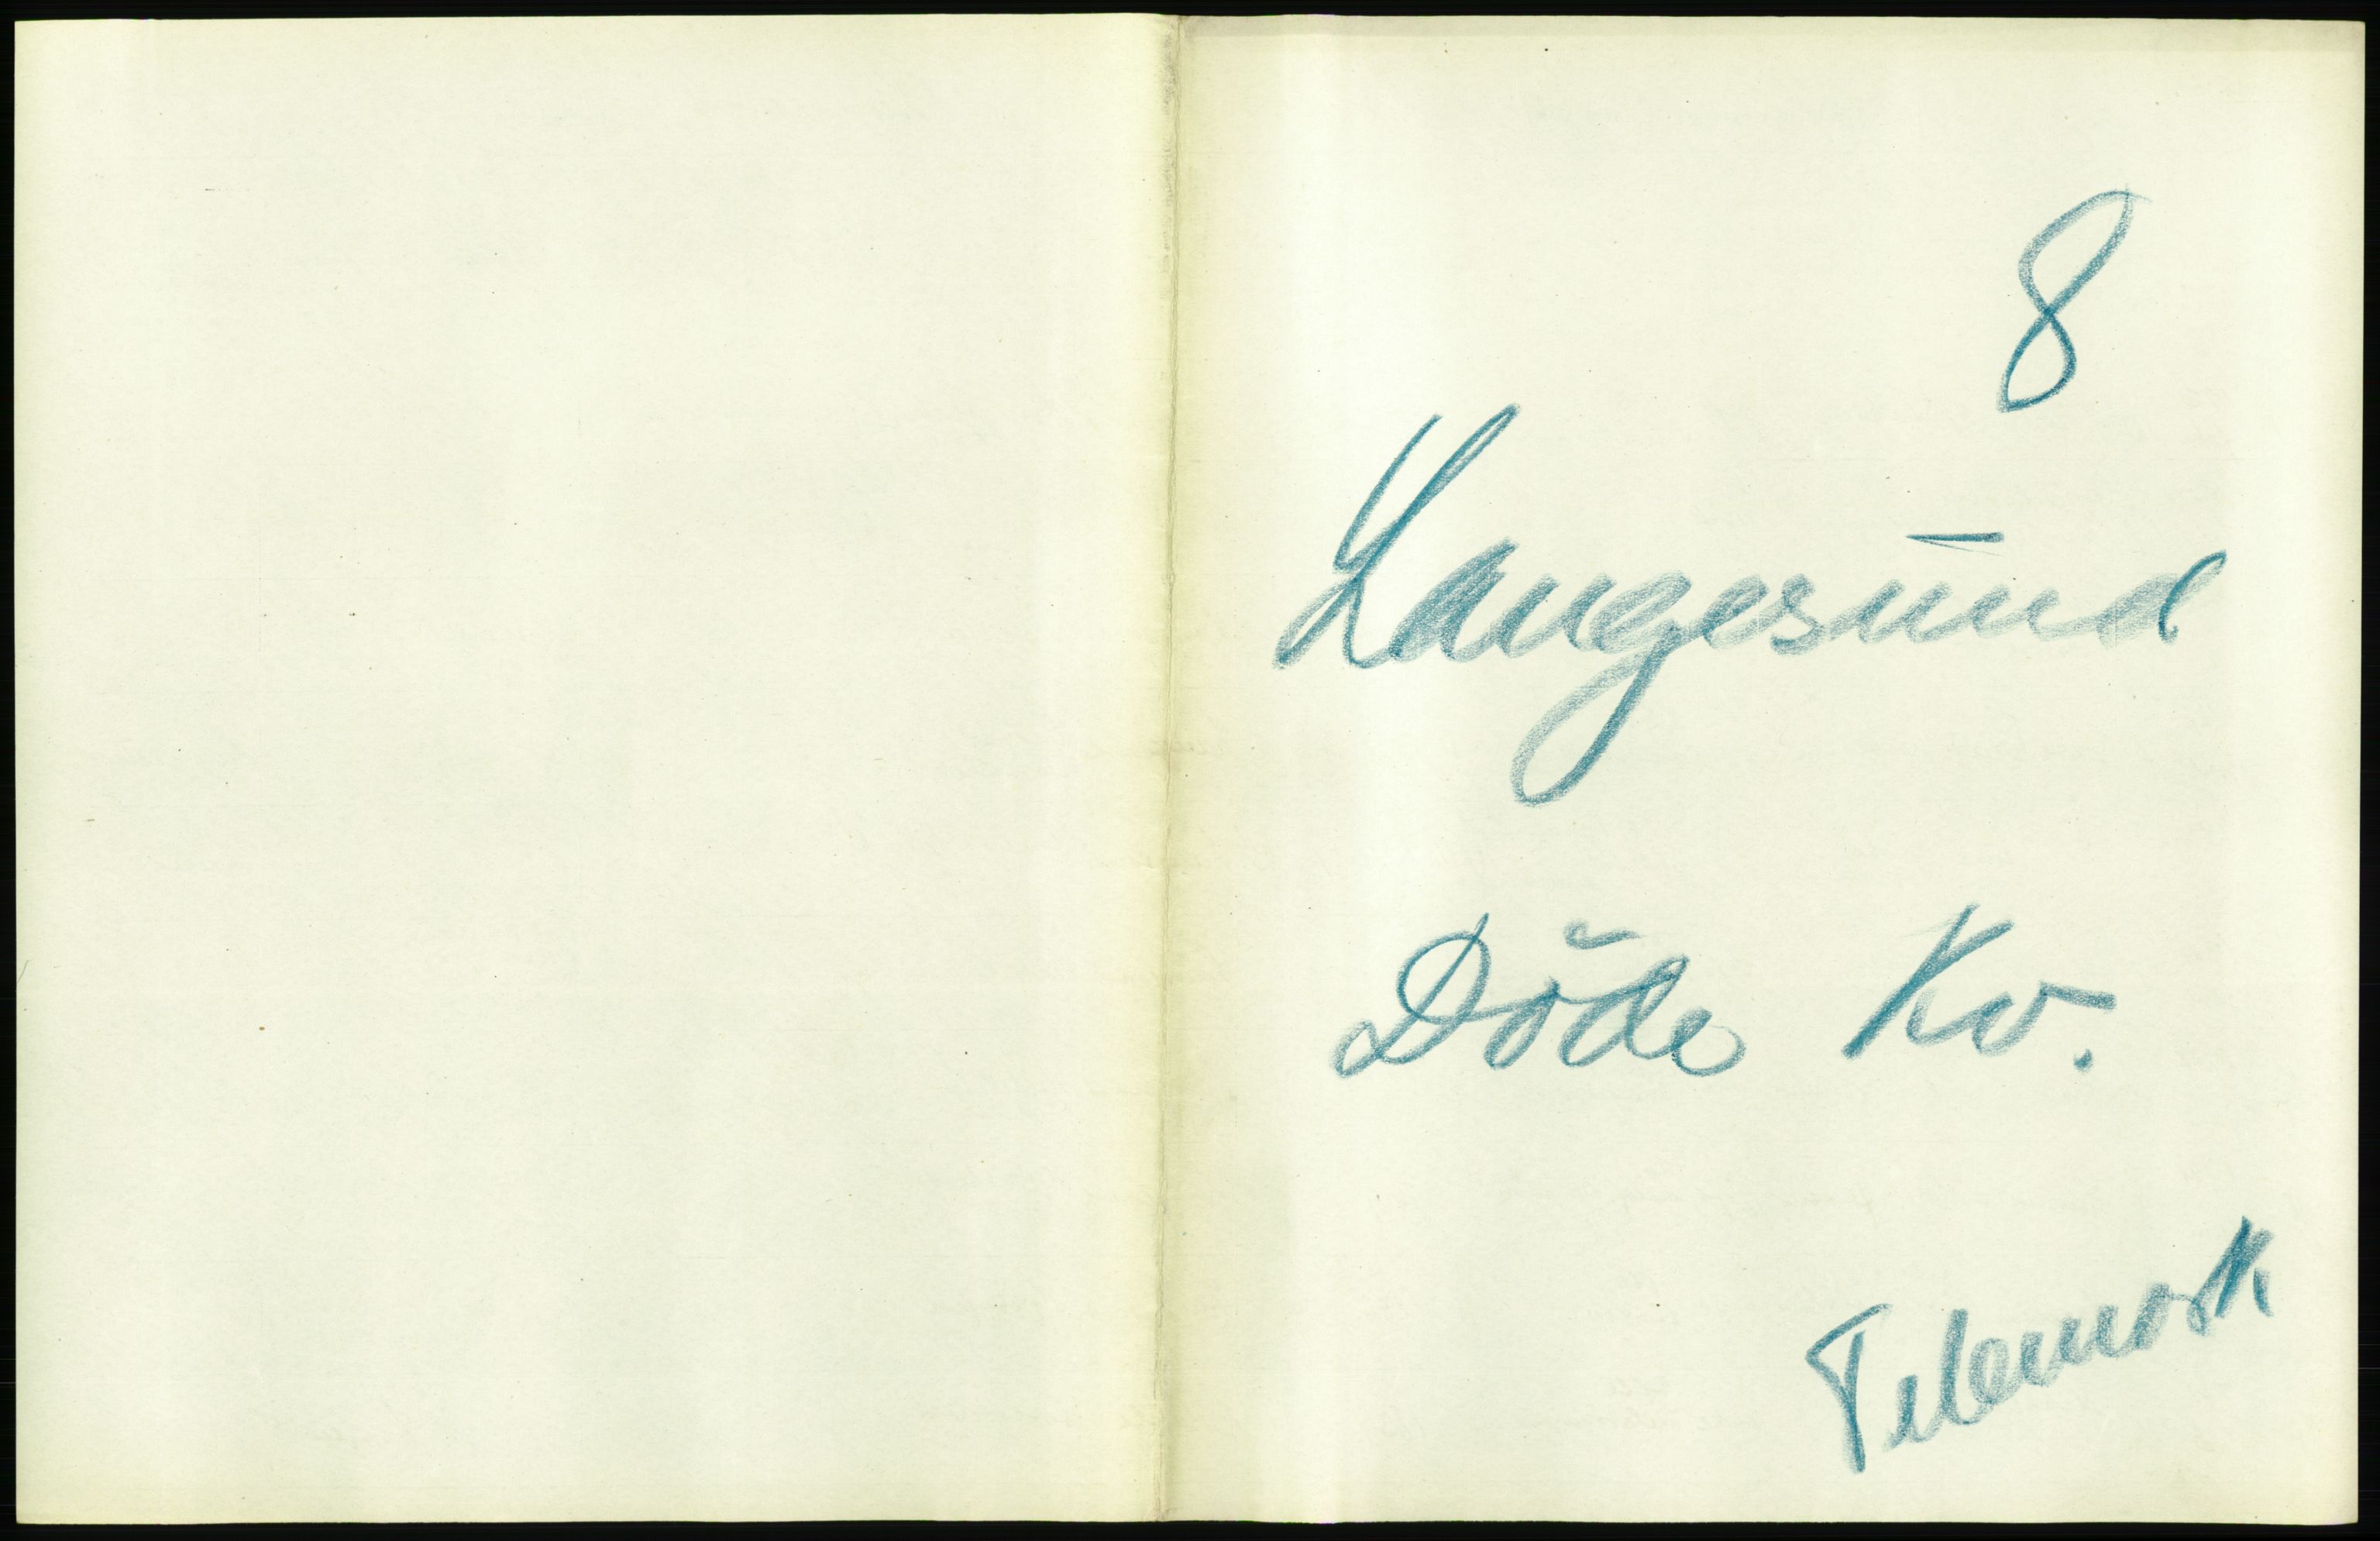 8
Langesund
Döde Kv.
Telemark